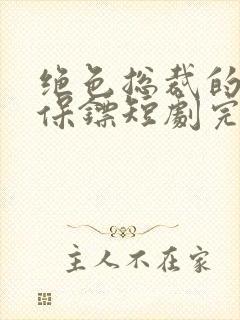 绝色总裁的
保镖短剧完
主人不在家